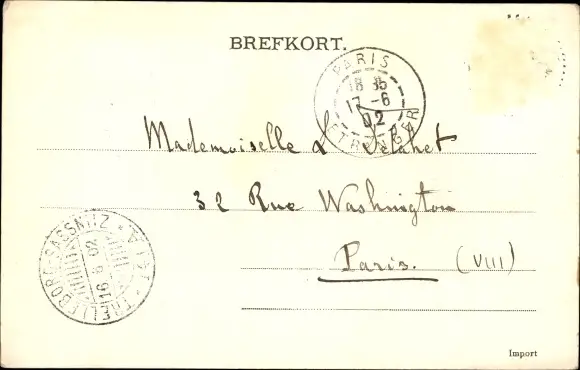 BREFKORT.
PARIS
18 35
17 - 6
02
ETRANGER
Mademoiselle L.
32 Rue Washington
Paris. (VIII)
TRELLEBORG-SASSNITZ
16 6 02
Import